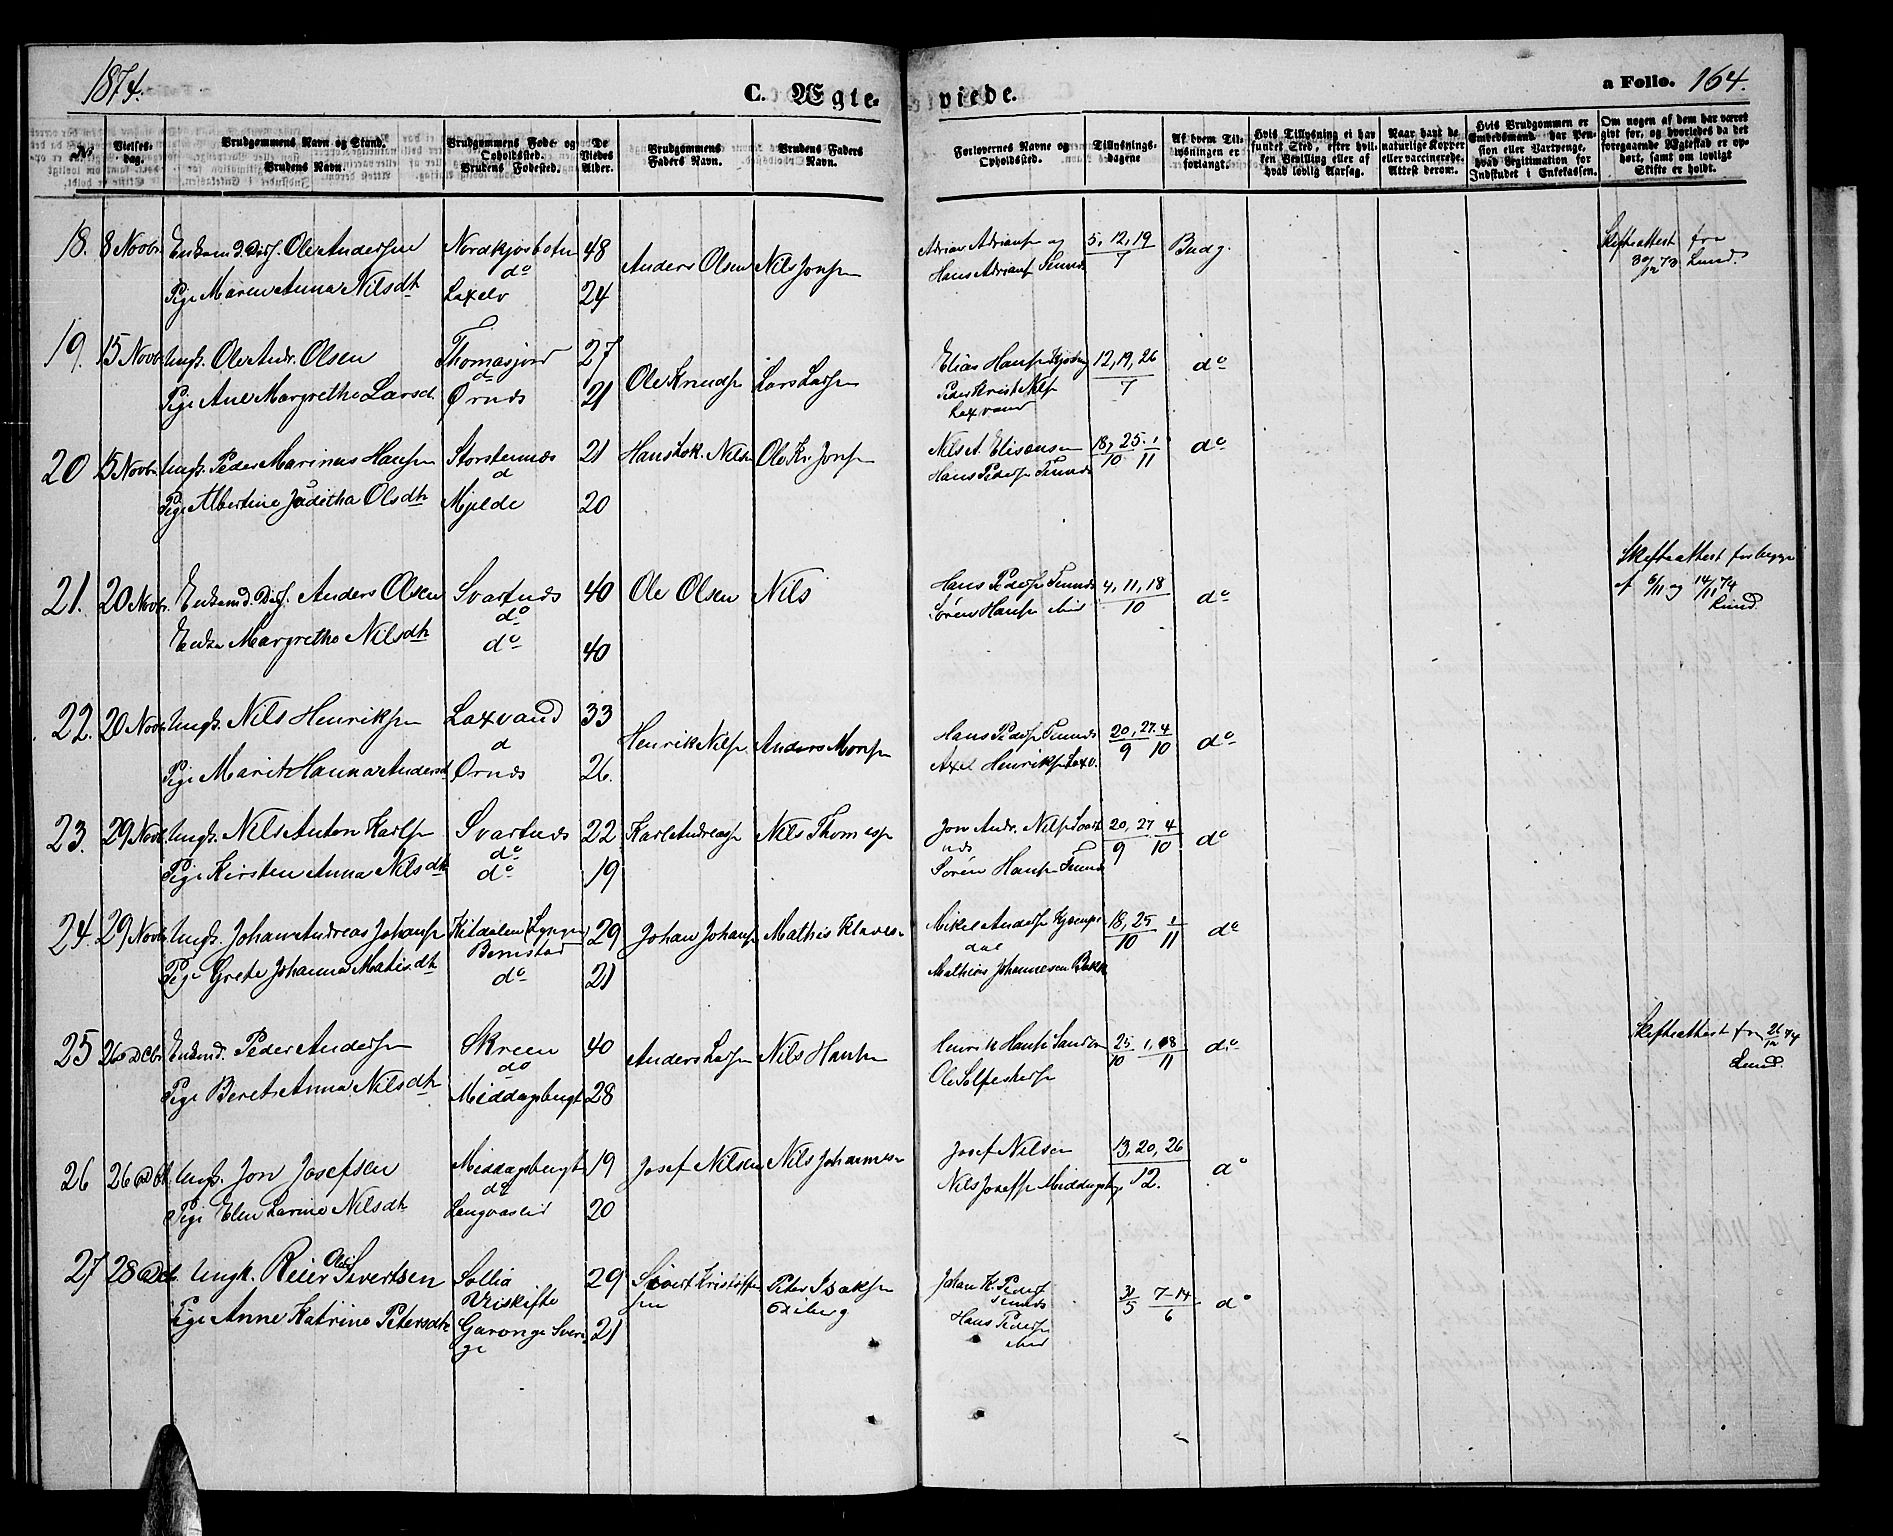 1874.
C. Ægteviede.
a Folio. 164.
No
Vielsesdag.
Brudgommens Navn og Stand.
Brudens Navn.
Brudgommens Føde- og Opholdssted.
Brudens Fødested.
De Viedes Alder.
Brudgommens Faders Navn.
Brudens Faders Navn.
Forlovernes Navne og Opholdssted.
Tillysningsdagene
Af hvem Tillysningen er forlangt.
Hvis Tillysning ei har fundet Sted, efter hvilken Bevilling eller af hvad lovlig Aarsag.
Naar havt de naturlige Kopper eller vaccinerede. Attest derom.
Hvis Brudgommen er Embedsmand, har Pension eller Vartpenge, hvad Legitimation for Indskudet i Enkekassen.
Om nogen af dem har været givt før, og hvorledes da det foregaaende Ægteskab er ophørt, samt om lovligt Skifte er holdt.
18. 8 Novbr Enkem. Ole Andersen Nordkjosbotn 48 Anders Olsen Nils Jonsen Adrian Adriansen og 5, 12, 19 Budg. Skifteattest fra
do Hans Adriansen 7 30/12 73 Lund.
Pige Maren Anna Nilsdtr Laxelv 24
19. 15 Novbr Ungk. Ole Andr. Olsen Thomasjord 27 Ole Knudsen Lars Larsen Elias Hansen 12, 19, 26 do
do Peder Krist Nilsen 7
Pige Ane Margrethe Larsd. Ørnes 21 Laxvand
20 15 Novbr Ungk. Peder Marinus Hansen Storstennes 21 Hans Isk. Nilsen Ole Kr. Jonsen Nils A. Elisensen 18, 25. 1 do
d Hans Pedersen 10 11
Pige Albertine Juditha Olsdtr Mjelde 20
21. 20 Novbr. Enkemd. Anders Olsen Svartnes 40 Ole Olsen Nils Hans Pedersen 4, 11, 18 do Skifteattest for begge
do Søren Hansen ibid 10 af 6/11 og 14/11 74
Enke Margrethe Nilsdtr do 40 Lund.
22. 20 Novbr Ungk. Nils Henriksen Laxvand 33 Henrik Nilsen Anders Monsen Hans Pedersen 20, 27. 4 do
d Axel Henriksen Laxv. 9 10
Pige Marit Hanna Andersd. Ørnes 26.
23. 29 Novbr Ungk. Nils Anton Karlsen Svartnes 22 Karl Andreassen Nils Thomesen Jon Andr. Nilsen Svart 20, 27 4 do
do nes 9 10
Pige Kirsten Anna Nilsdtr do 19 Søren Hansen
24. 29 Novbr Ungk. Johan Andreas Johansen Kitdalen (Lyngen) 29 Johan Johansen Mathis Klavesen Mikel Andersen 18, 25 1 do
dal 10 11
Pige Grete Johanna Matisdtr do 21 Mathias Johannesen
25 26 Dcbr Enkemd. Peder Andersen Skreen 40 Anders Larsen Nils Hansen Henrik Hansen 25 1, 8 do Skifteattest fra 21/12 74
do 10 11 Lund.
Pige Beret Anna Nilsdtr Middagsbugt 28 Ole
26 26 Dcbr. Ungk. Jon Josefsen Middagsbugt 19 Josef Nilsen Nils Johannesen Josef Nilsen 13, 20, 26 do
do Nils Josefsen Middagsbugt 12.
Pige Elen Larine Nilsdtr 20
27 28 Dcb. Ungk. Reier Ole Sivertsen Sollia 29 Sivert Kristoffersen Peter Isaksen Johan K. Peders 31/5 7-14/6 do
Øxiskifte
Pige Anne Katrine Petersdtr Sverige 21 Hans Pedersen
ibid